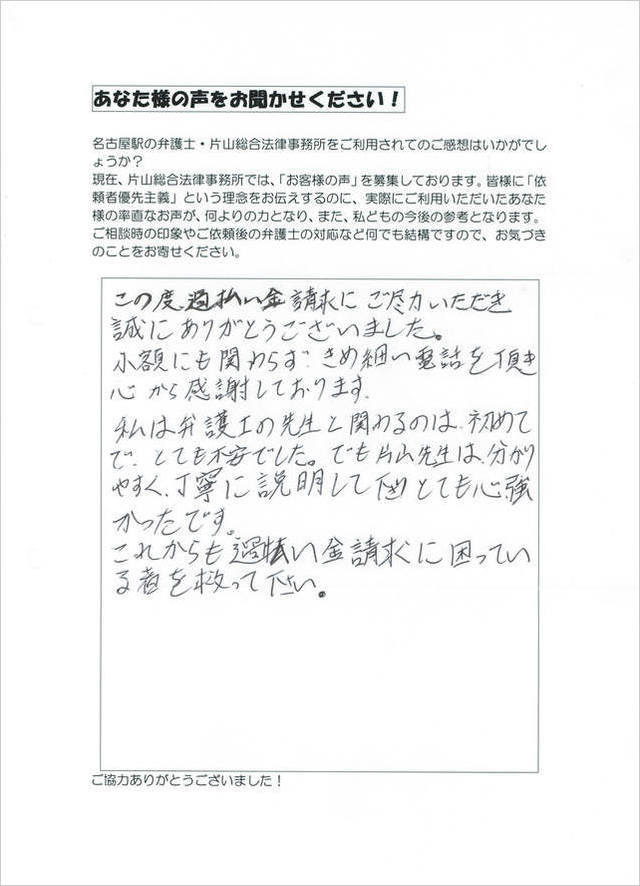 あなた様の声をお聞かせください！
名古屋駅の弁護士・片山総合法律事務所をご利用されてのご感想はいかがでし
ょうか？
現在、片山総合法律事務所では、「お客様の声」を募集しております。皆様に「依
頼者優先主義」という理念をお伝えするのに、実際にご利用いただいたあなた
様の率直なお声が、何よりの力となり、また、私どもの今後の参考となります。
ご相談時の印象やご依頼後の弁護士の対応など何でも結構ですので、お気づき
のことをお寄せください。
この度過払い金請求にご尽力いただき
誠にありがとうございました。
小額にも関わらず、きめ細い電話を頂き
心から感謝しております。
私は弁護士の先生と関わるのは、初めて
で、とても不安でした。でも片山先生は、分かり
やすく、丁寧に説明して下さりとても心強
かったです。
これからも過払い金請求に困ってい
る者を救って下さい。
ご協力ありがとうございました！